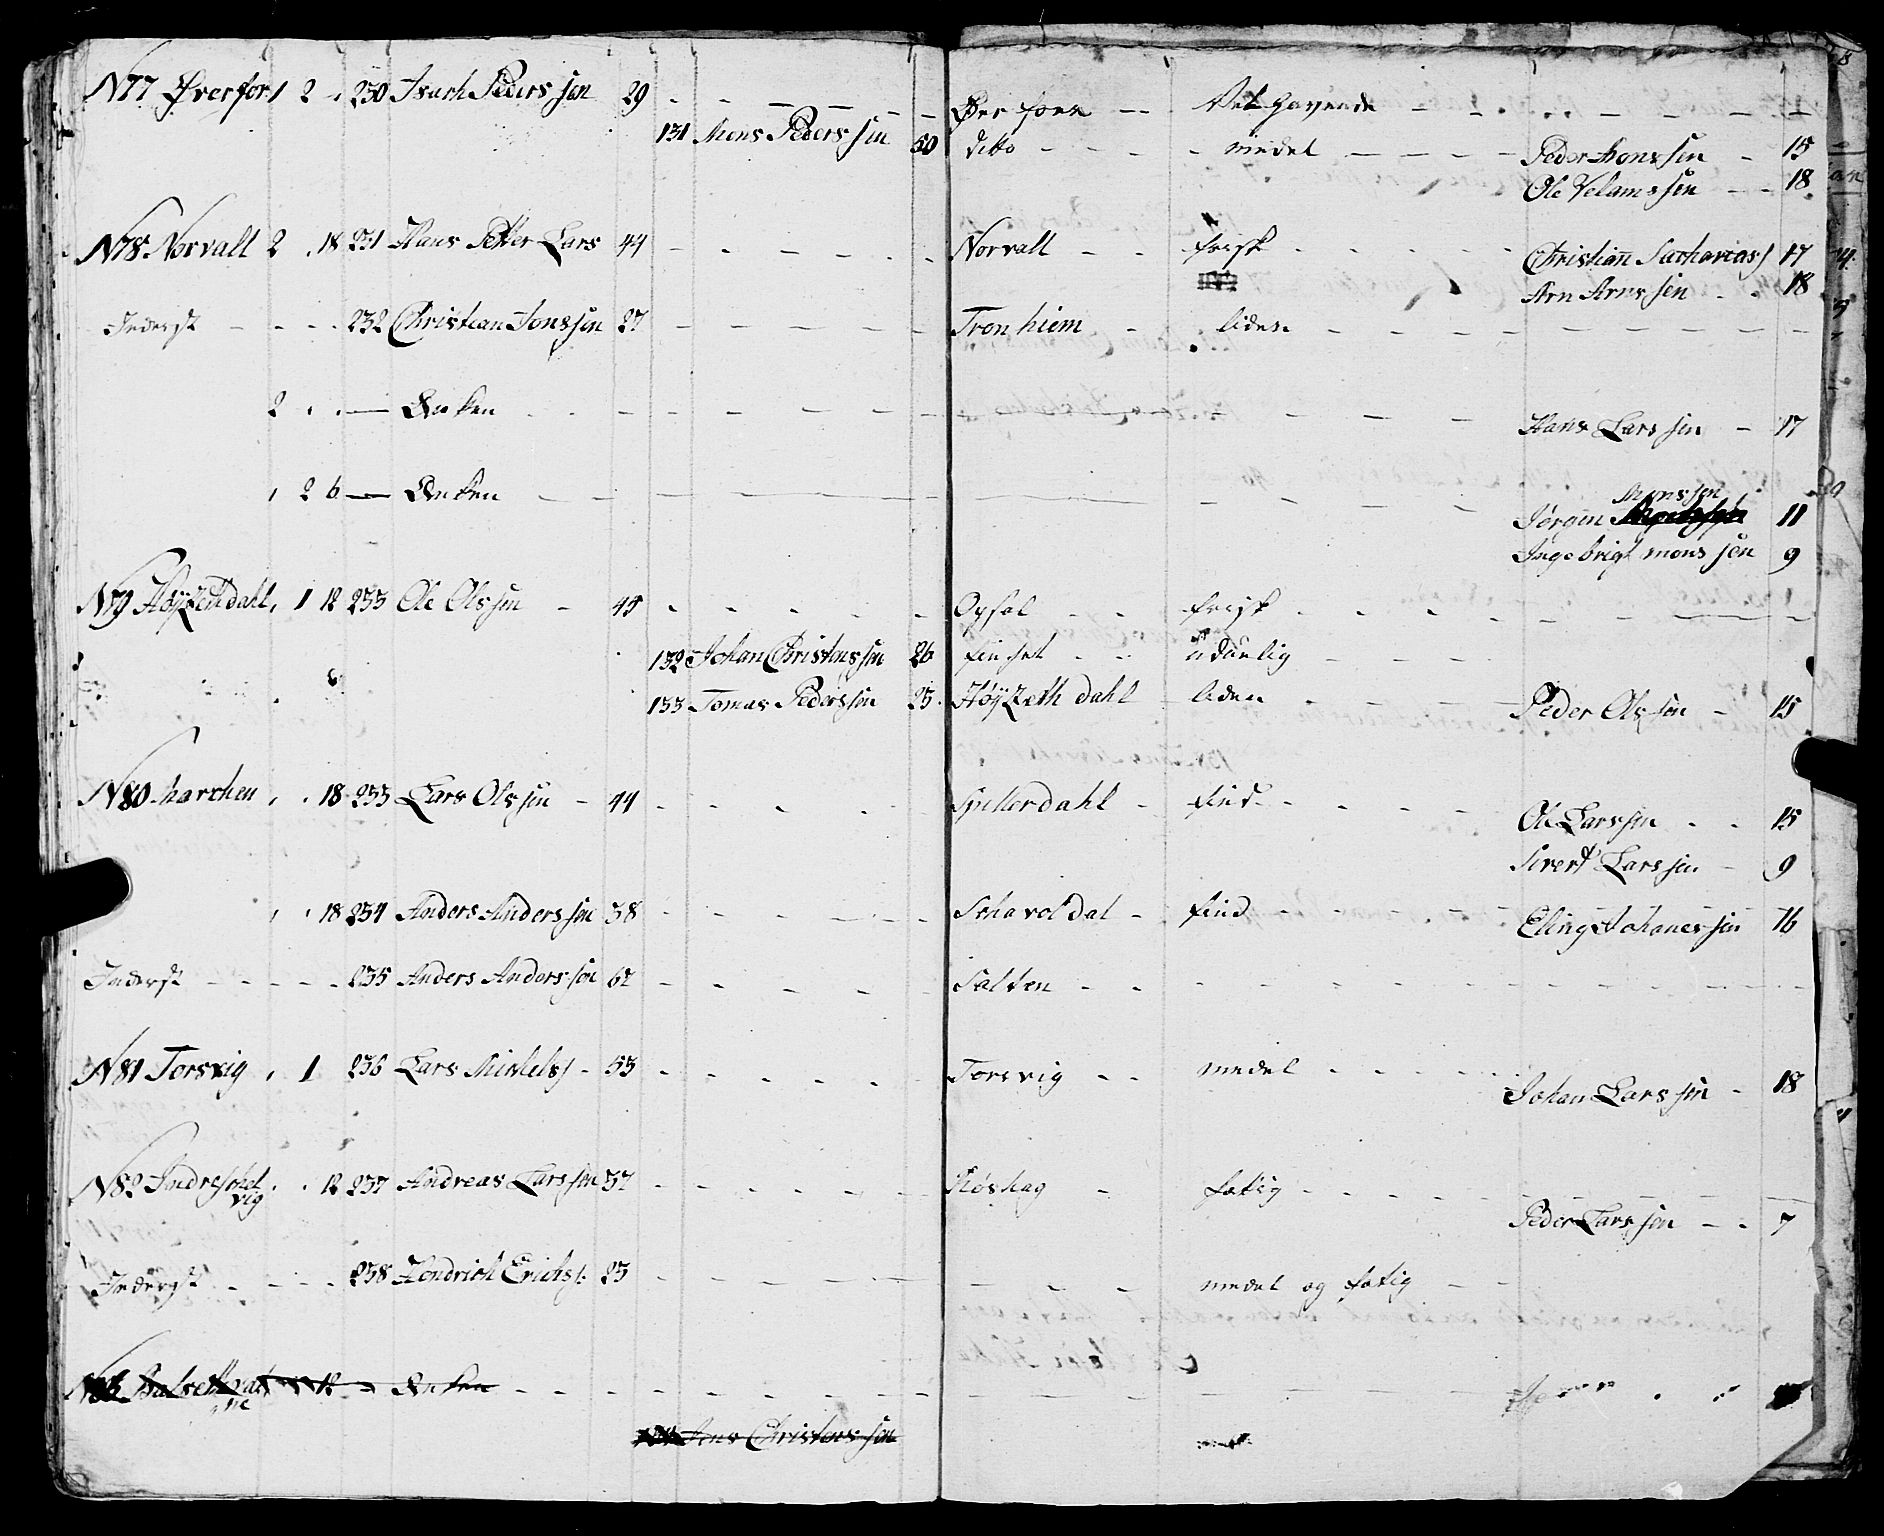 N77 Øverfor 1 2 . 230 Isach Peders sen 29 Øverforn Velhavende
131 Mons Peders sen 50 ditto medel Peder Monssen 15
Ole Velamssen 18
N78 Norvall 2 . 18 231 Hans Petter Lars 44 Norvall frisk Christian Sacharias) 17
Arn Arnssen 18
Inderst 232 Christian Jonssen 27 Tronhiem liden
2 . . Enken Hans Larssen 17
, 2 6 Enken Monssen
Jørgen 11
Ingebrigt monssen 9
N79 Høyzetdahl , 1 12 233 Ole Olssen 45 Opsal frisk
132 Johan Christenssen 26 finset udüelig
133 Tomas Pederssen 23 Høyzeth dahl liden Peder Olssen 15
N80 Marchen , . 18 233 Lars Olssen 44 Spillerdahl find
Ole Larssen 15
Sivert Larssen 9
, . 18 234 Anders Anderssen 38 Schavoldal find Eling Johanessen 16
Inderst 235 Anders Anderssen 62 Salten
N81 Torsvig , 1 236 Lars Michels) 53 Torsvig medel
Johan Larssen 18
N82 Indreschel
vig . . 12 237 Andreas Larssen 37 Røshag fatig
Peder Larssen 7
Inderst 238 Hendrich Erichs: 23 medel og fatig
12 Enken
Jens Christenssen